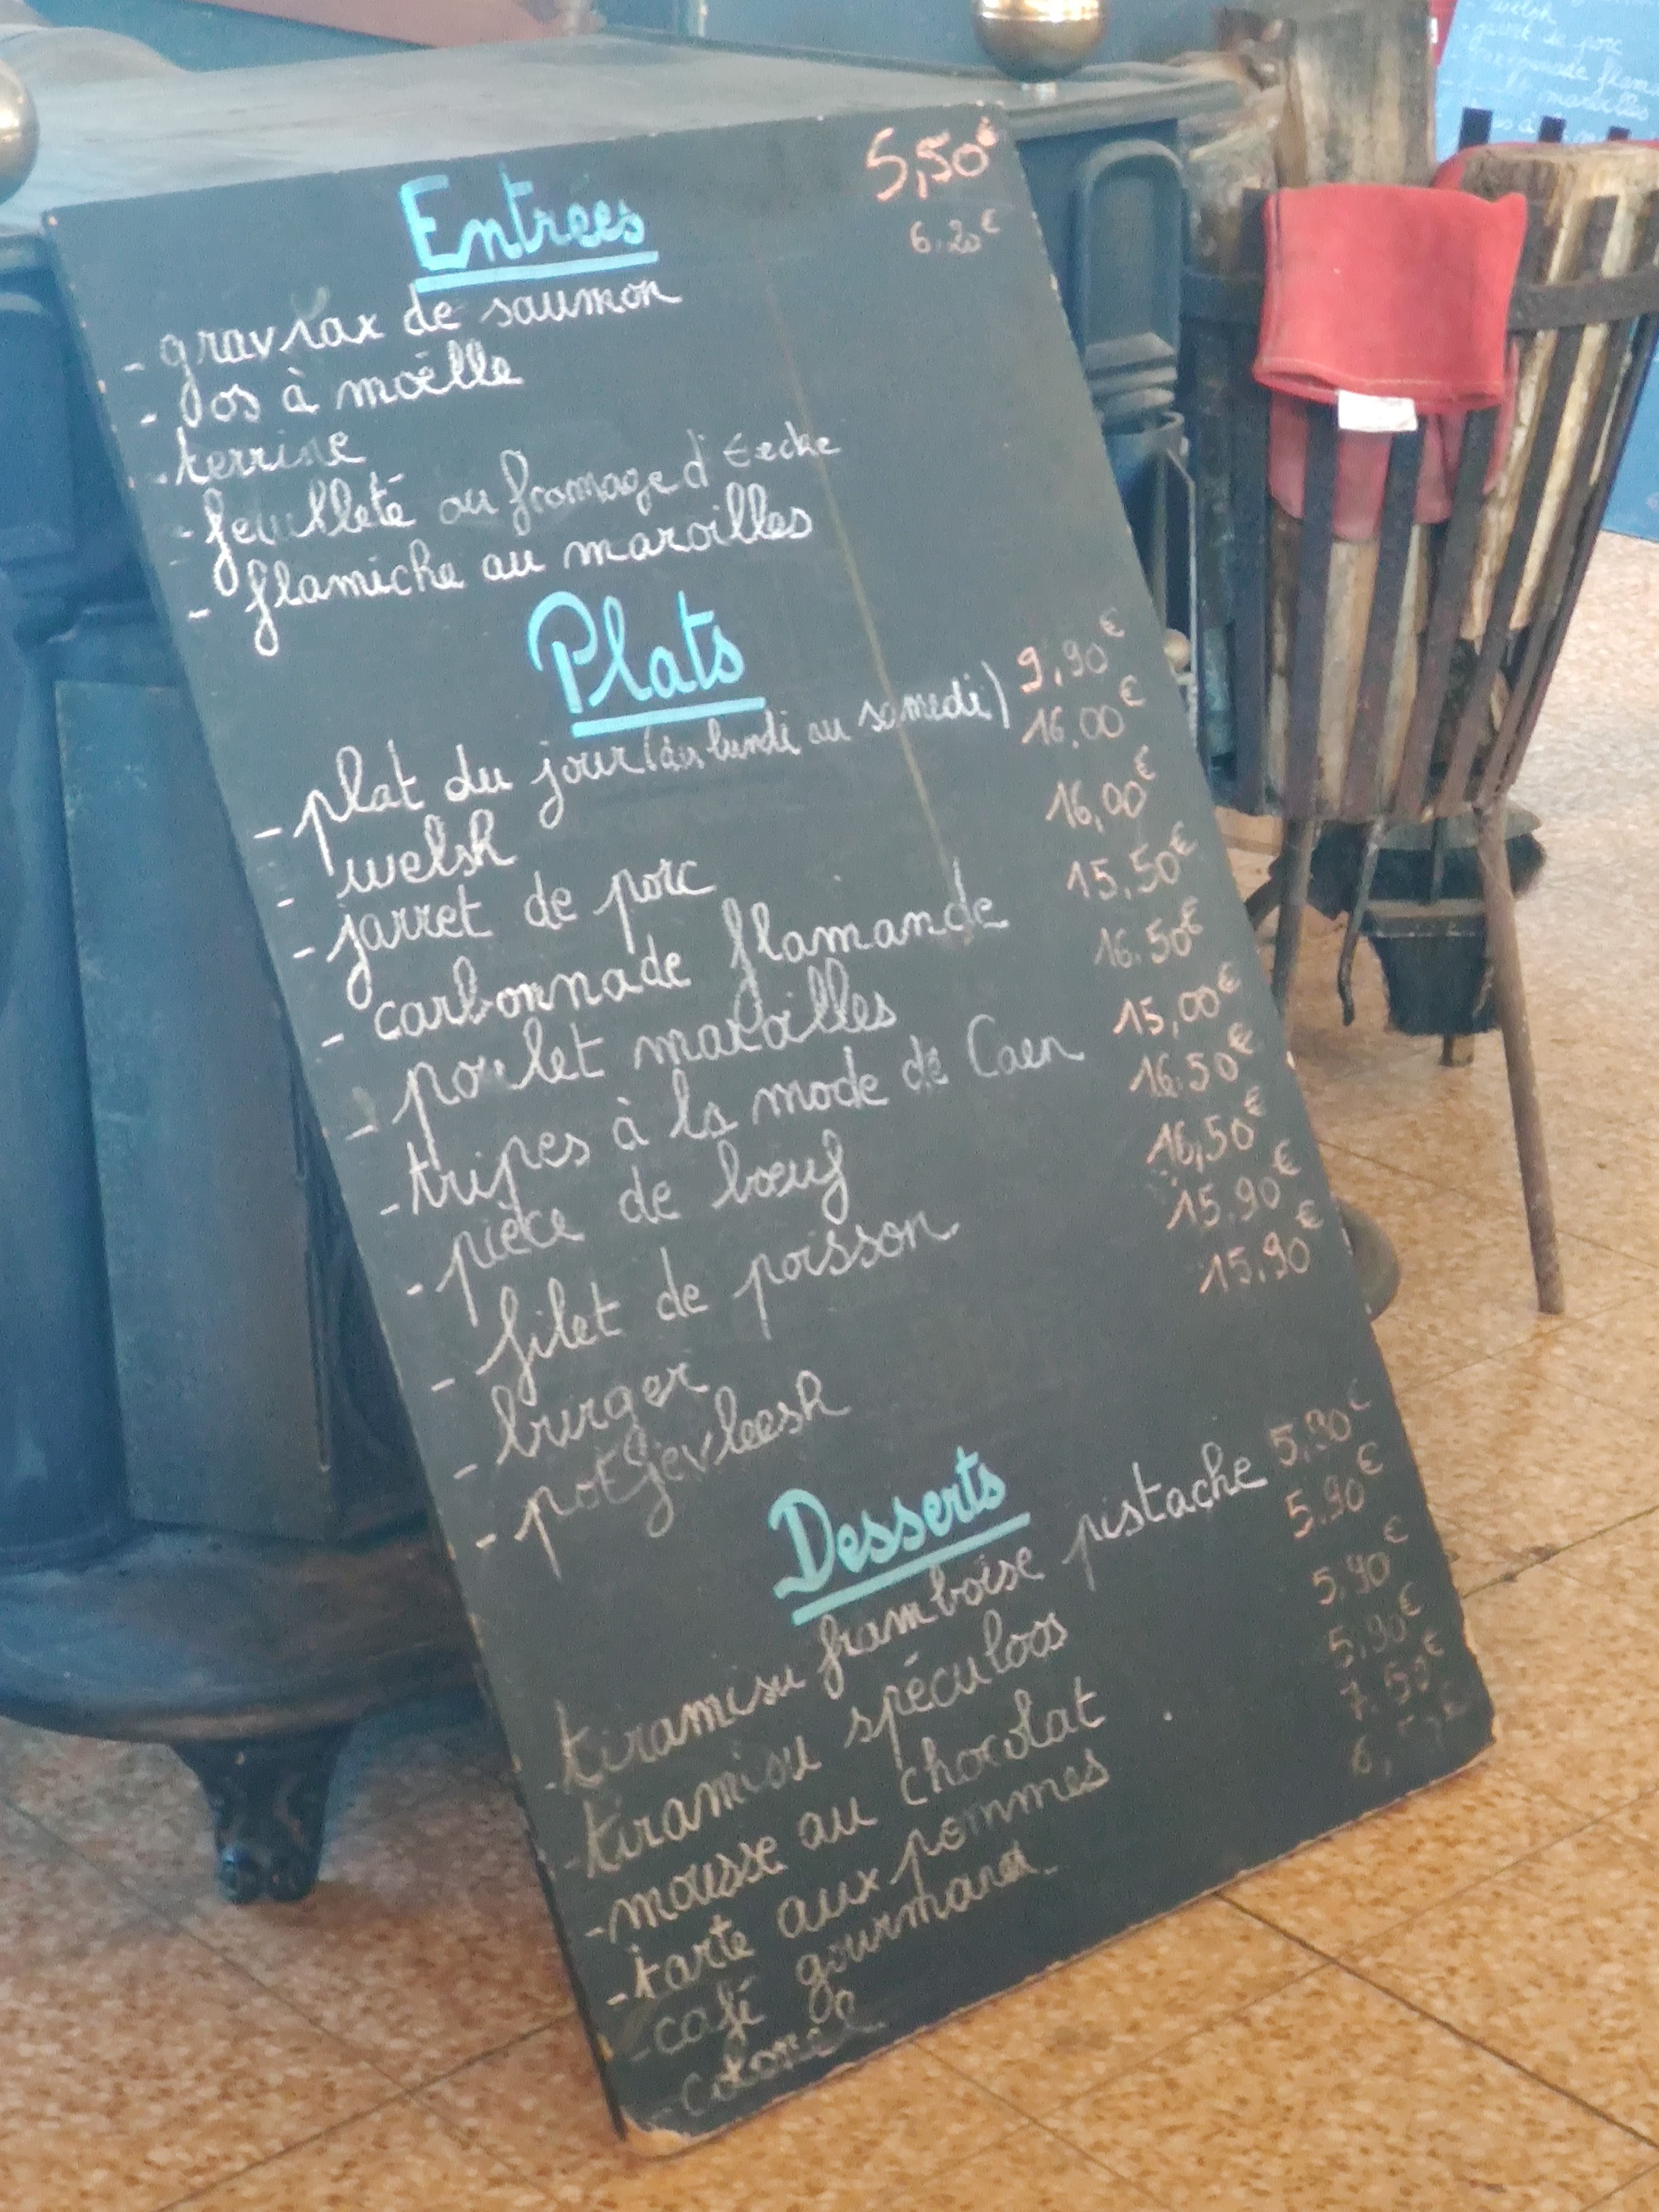 Entrées 5,50€
6,20€
- gravlax de saumon
- os à moëlle
- terrine
- feuilleté au fromage d'Eecke
- flamiche au maroilles
Plats
- plat du jour (du lundi au samedi) 9,90€
- welsh 16,00€
- jarret de porc 16,00€
- carbonnade flamande 15,50€
- poulet maroilles 16.50€
- tripes à la mode de Caen 15,00€
- pièce de bœuf 16.50€
- filet de poisson 16,50€
- burger 15.90€
- potjevleesh 15.90€
Desserts
- tiramisu framboise pistache 5,90€
- tiramisu spéculoos 5.90€
- mousse au chocolat 5.90€
- tarte aux pommes 5,90€
- café gourmand 7.50€
- colonel
welsh
jarret de porc